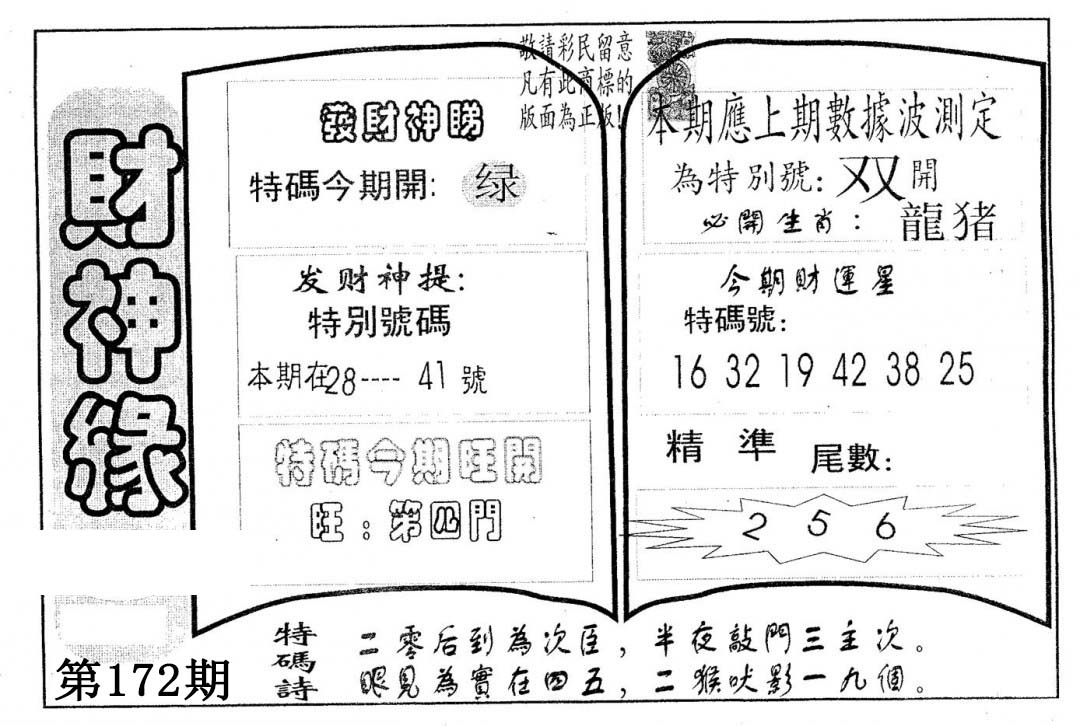 財神緣
第172期
敬請彩民留意
凡有此商標的
版面為正版!
發財神睇
特碼今期開: 绿
发财神提:
特別號碼
本期在28---- 41 號
特碼今期旺開
旺:第四門
本期應上期數據波測定
為特別號: 双 開
必開生肖: 龍猪
今期財運星
特碼號:
16 32 19 42 38 25
精準 尾數:
2 5 6
特碼詩
二零后到為次臣,半夜敲門三主次。
眼見為實在四五,二猴吠影一九個。